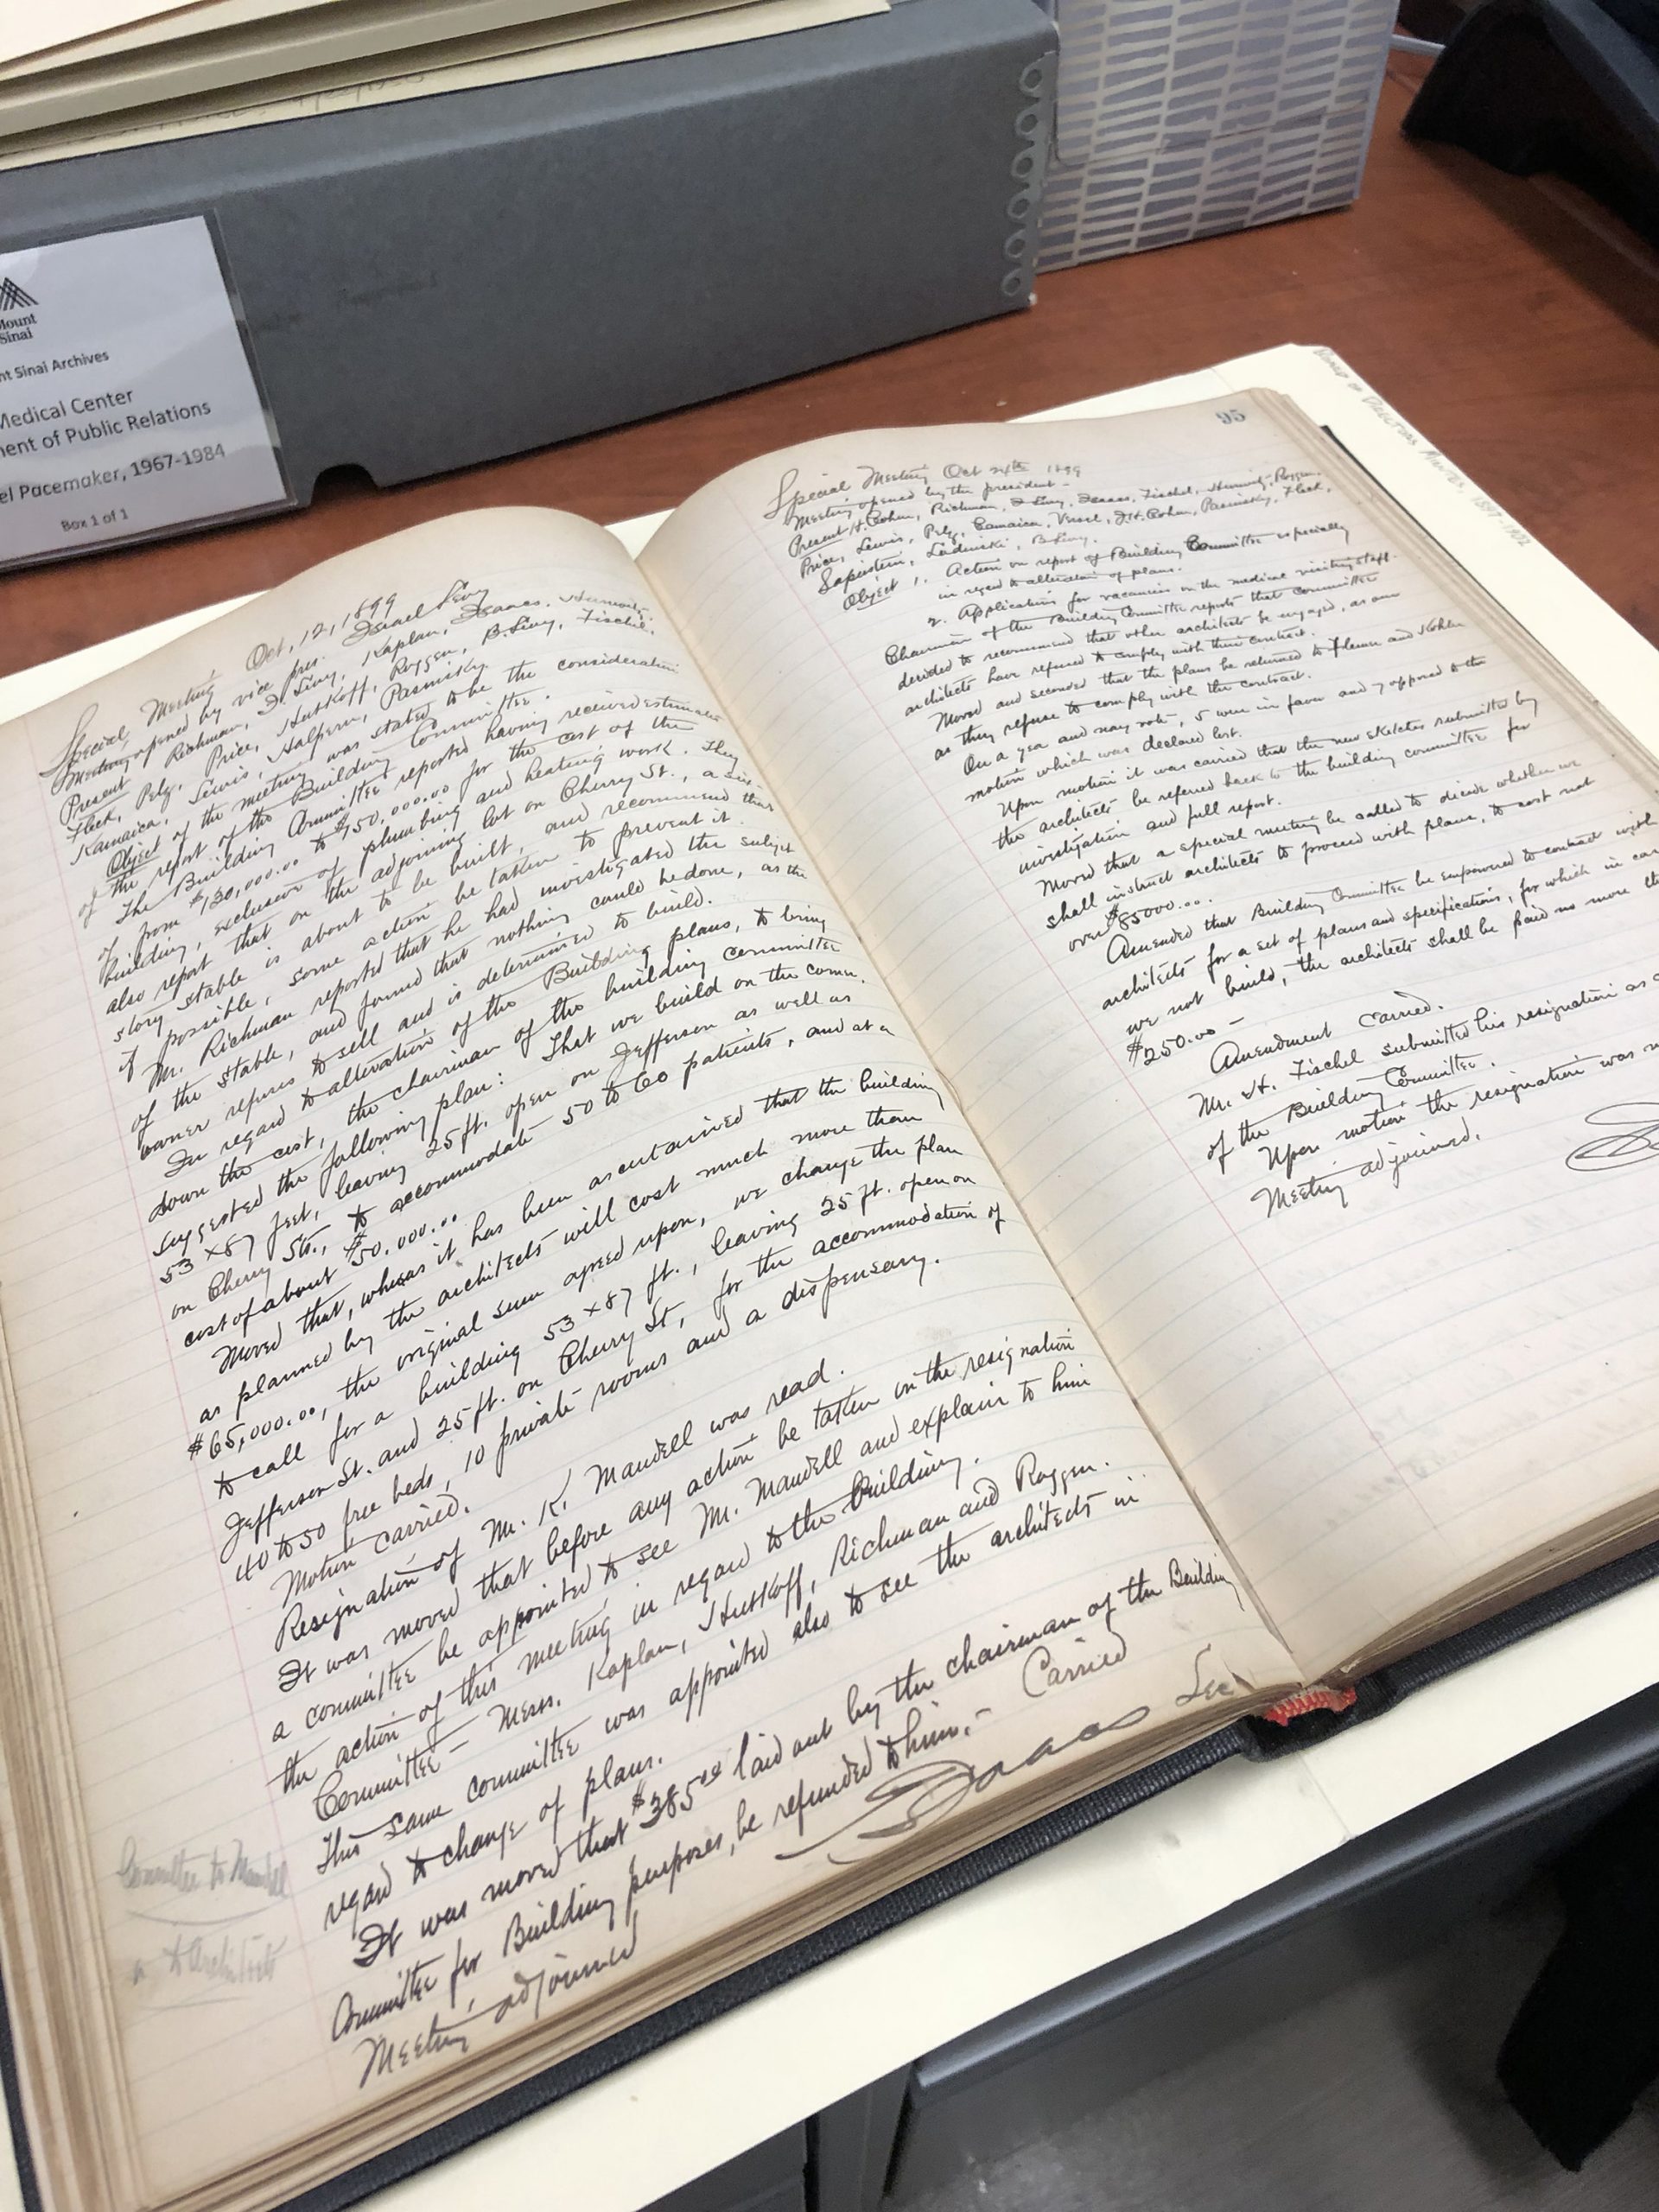 Mount
Sinai
nt Sinai Archives
Medical Center
ment of Public Relations
el Pacemaker, 1967-1984
Box 1 of 1
Special Meeting Oct, 12, 1899
Meeting opened by vice pres. Israel Levy
Present Richman, I Levy, Kaplan, Isaacs,
Fleck, Pelz, Price, Hutkoff, Roggen, B. Levy, Fischel,
Kamaica, Lewis, Halpern, Pasinsky.
Object of the meeting was stated to be the consideration
of the report of the Building Committee.
The Building Committee reported having received estimates
of from $130,000.00 to $150,000.00 for the cost of the
building, exclusive of plumbing and heating work. They
also report that on the adjoining lot on Cherry St., a six
story stable is about to be built, and recommend that
if possible, some action be taken to prevent it.
Mr. Richman reported that he had investigated the subject
of the stable, and found that nothing could be done, as the
owner refuses to sell and is determined to build.
In regard to alteration of the Building plans, to bring
down the cost, the chairman of the building committee
suggested the following plan: That we build on the corner
53 x 87 feet, leaving 25 ft. open on Jefferson as well as
on Cherry Sts., to accommodate 50 to 60 patients, and at a
cost of about $50.000.00
Moved that, whereas it has been ascertained that the building
as planned by the architects will cost much more than
$65,000.00, the original sum agreed upon, we change the plan
to call for a building 53 x 87 ft., leaving 25 ft. open on
Jefferson St. and 25 ft. on Cherry St, for the accommodation of
40 to 50 free beds, 10 private rooms and a dispensary.
Motion carried.
Resignation of Mr. K. Mandell was read.
It was moved that before any action be taken on the resignation
a committee be appointed to see Mr. Mandell and explain to him
the action of this meeting in regard to the Building.
Committee - Mess. Kaplan, Hutkoff, Richman and Roggen.
This same committee was appointed also to see the architects in
regard to change of plans.
It was moved that $385.00 laid out by the chairman of the Building
Committee for Building purposes, be refunded to him. - Carried
Meeting adjourned
Isaacs Sec.
Committee to Mandell
" to Architects
95
Special Meeting Oct 24th 1899
Meeting opened by the president -
Present H. Cohen, Richman, I Levy, Isaacs, Fischel, Roggen,
Price, Lewis, Pelz, Camaica, Vessel, J.H. Cohen, Pasinsky, Fleck,
Sapirstein, B. Levy.
Object 1. Action on report of Building Committee especially
in regard to alteration of plans.
2. Application for vacancies on the medical visiting staff.
Chairman of the Building Committee reports that committee
decided to recommend that other architects be engaged, as our
architects have refused to comply with their contract.
Moved and seconded that the plans be returned to and Kohler
as they refuse to comply with the contract.
On a yea and nay vote, 5 were in favor and 7 opposed to the
motion which was declared lost.
Upon motion it was carried that the new sketches submitted by
the architects be referred back to the building committee for
investigation and full report.
Moved that a special meeting be called to decide whether we
shall instruct architects to proceed with plans, to cost not
over $85000.00.
Amended that Building Committee be empowered to contract with
architects for a set of plans and specifications, for which in case
we not build, the architects shall be paid no more than
$250.00 -
Amendment carried.
Mr. H. Fischel submitted his resignation as
of the Building Committee.
Upon motion the resignation was
Meeting adjourned.
BOARD OF DIRECTORS MINUTES, 1897-1902